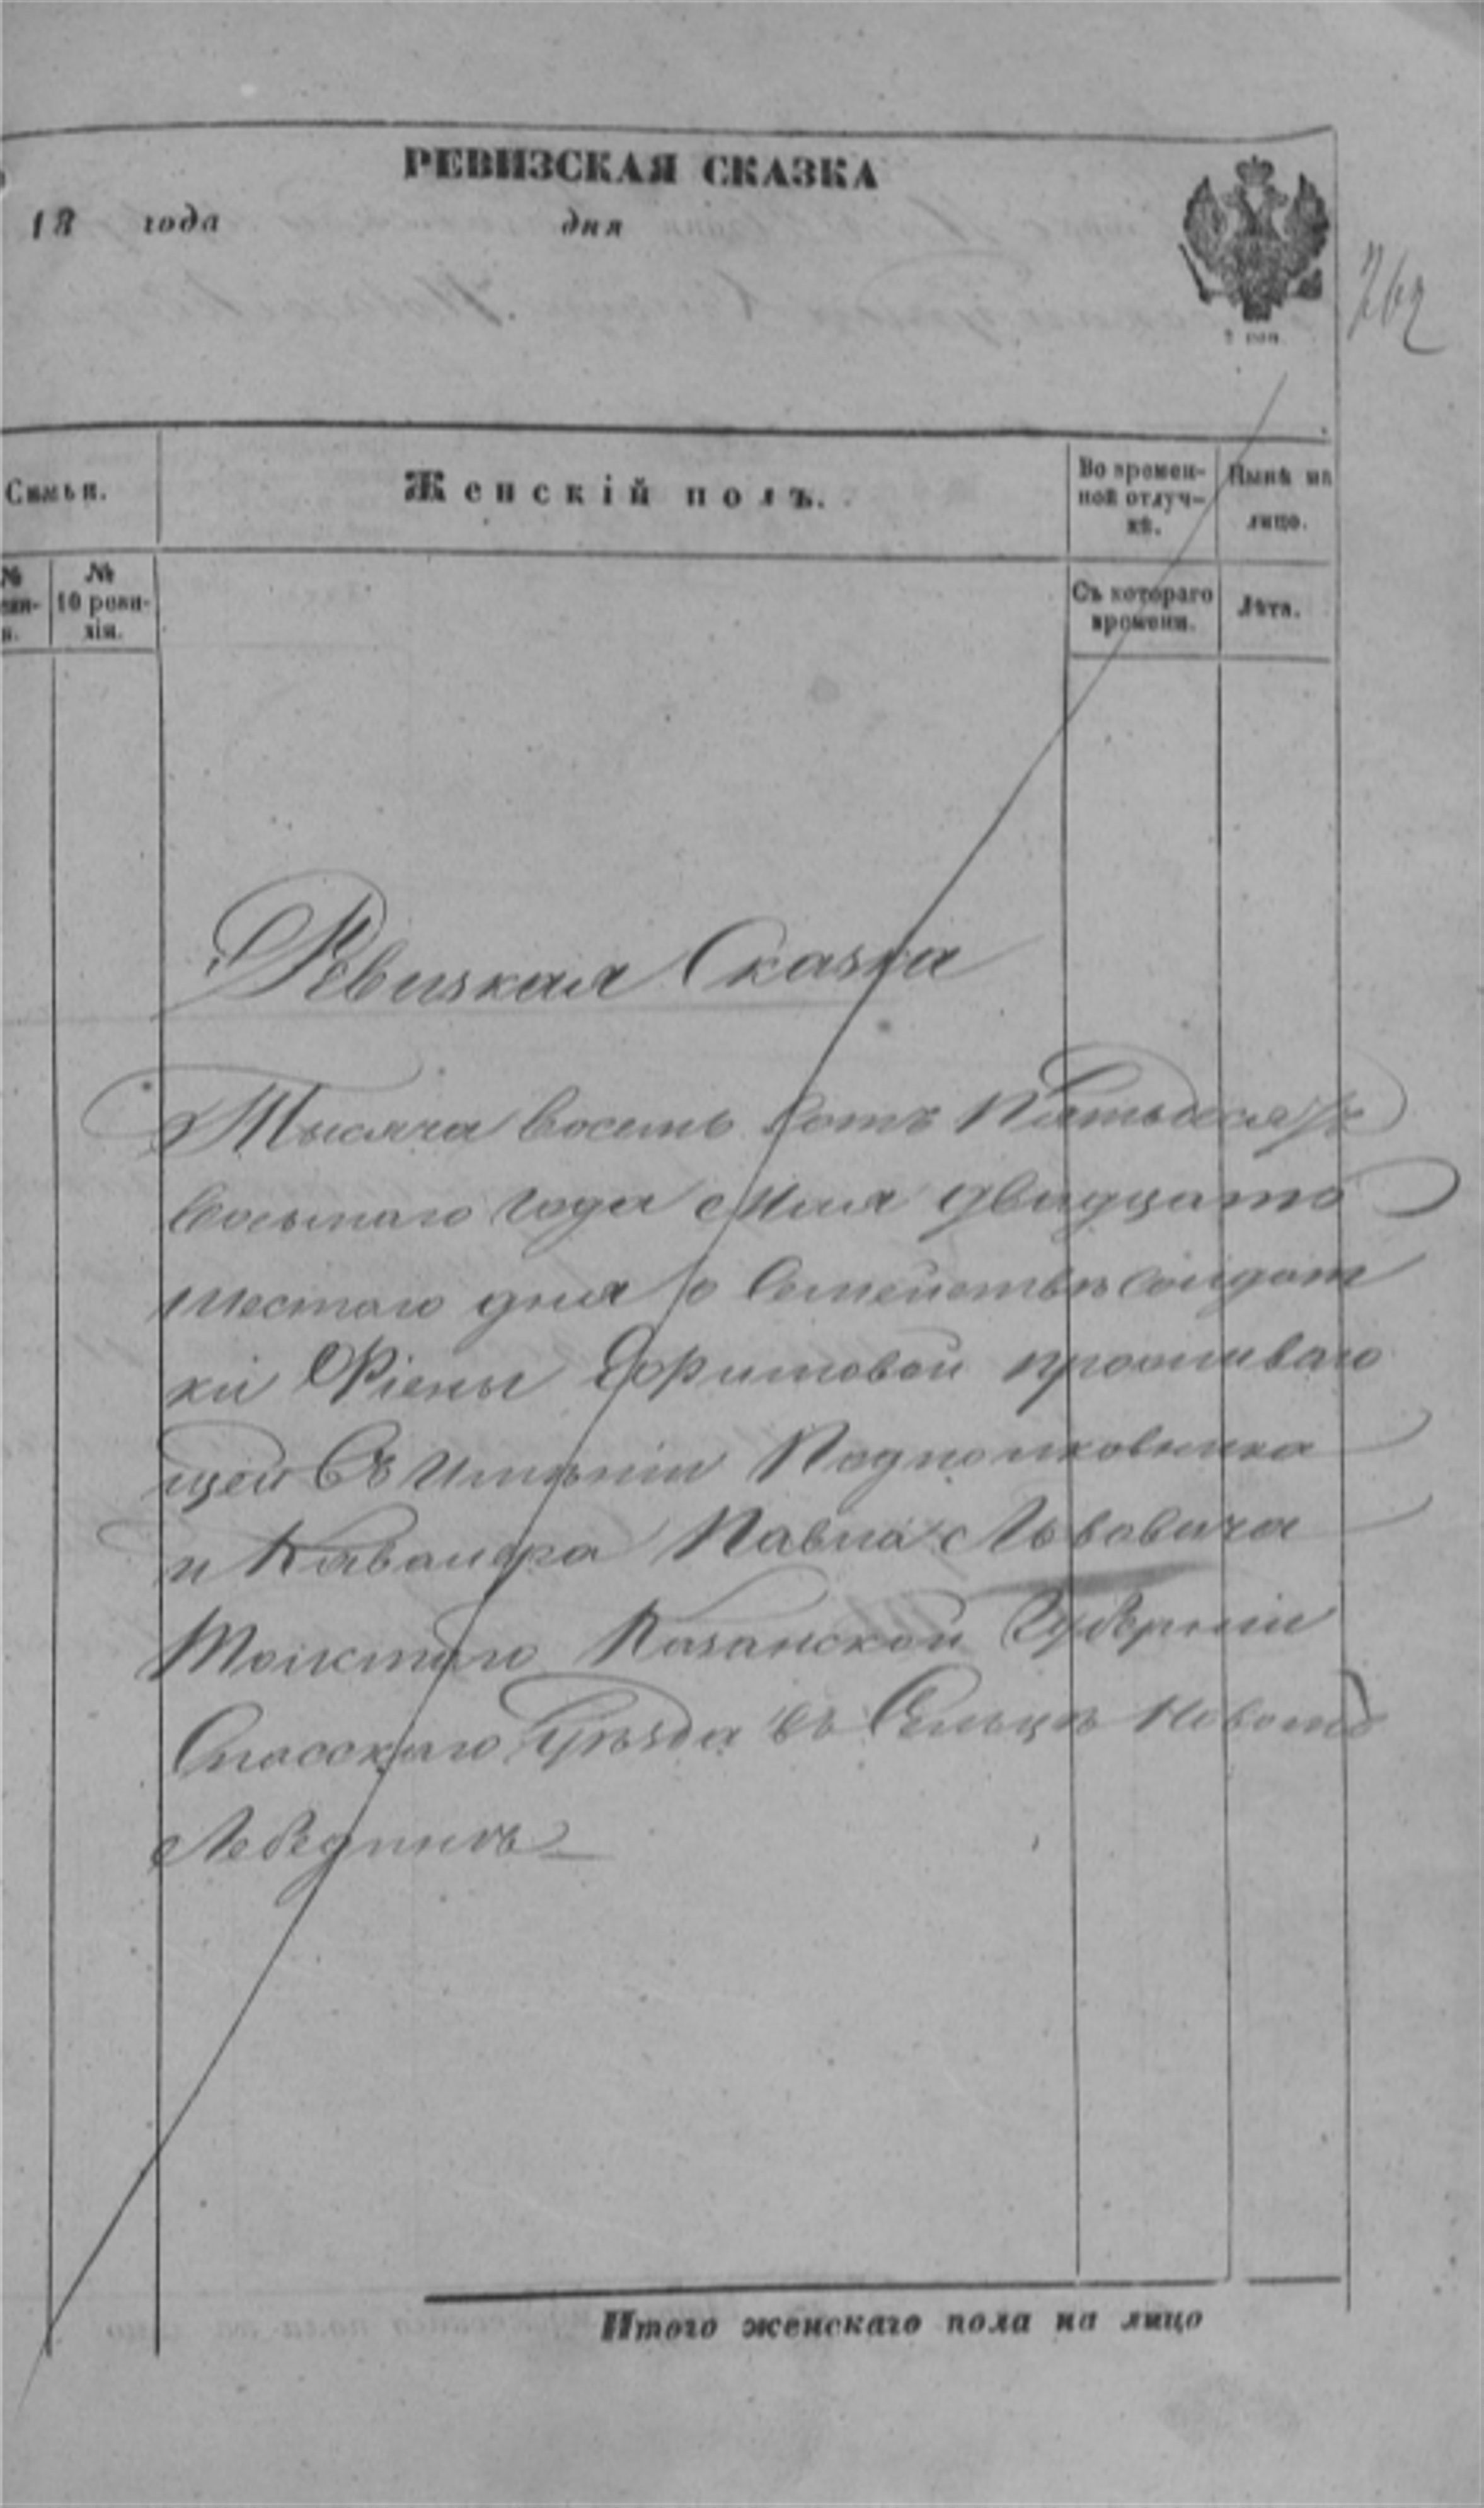 РЕВИЗСКАЯ СКАЗКА
18 года дня
762
Семьи.
Женскій полъ.
Во времен-
ной отлуч-
кѣ.
Нынѣ на
лицо.
№
№
10 реви-
зіи.
Съ котораго
времени.
Лѣта.
Ревизкая Сказка
Тысяча восемь сотъ Пятьдесятъ
восьмаго года Мая двадцать
шестаго дня о Семействѣ солдат
ки проживаю
щей въ имѣніи Подполковника
и Кавалера Павла Львовича
Толстаго Казанской Губерніи
Спасскаго Уѣзда въ Сельцѣ Новомъ
Лебедину
Итого женскаго пола на лицо